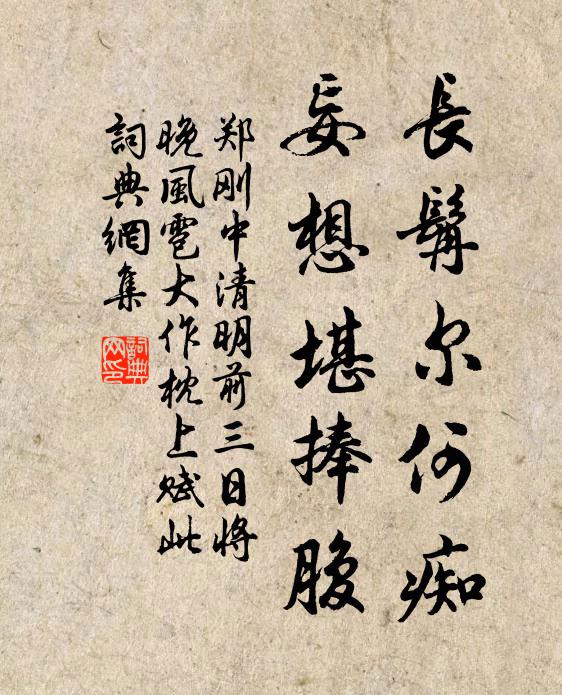 長髯尔何痴
妄想堪捧腹
郑刚中清明前三日将
晚風雹大作枕上赋此
詞典網集
詞典网印